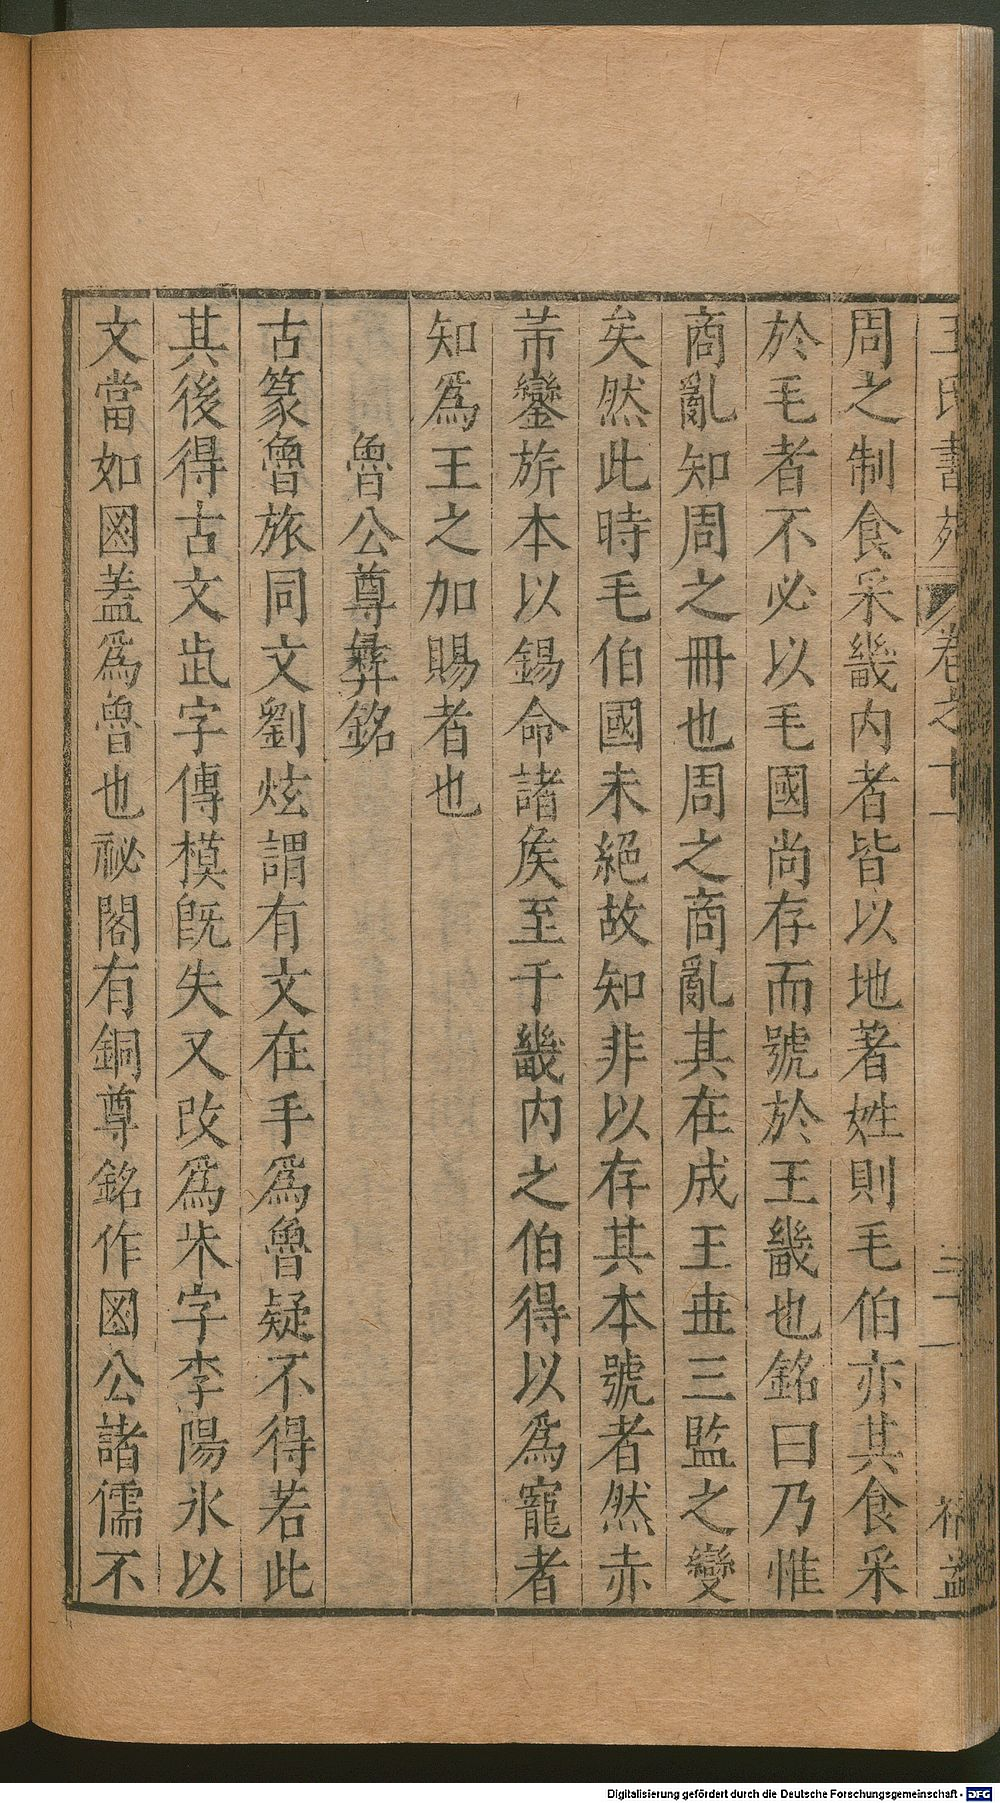 王氏書苑 卷之十一 三十一 補益
周之制食采畿内者皆以地著姓則毛伯亦其食采
於毛者不必以毛國尚存而號於王畿也銘曰乃惟
商亂知周之冊也周之商亂其在成王丗三監之變
矣然此時毛伯國未絕故知非以存其本號者然赤
芾鑾旂本以錫命諸侯至于畿内之伯得以為寵者
知為王之加賜者也
魯公尊彝銘
古篆魯旅同文劉炫謂有文在手為魯疑不得若此
其後得古文字傳模旣失又改為字李陽氷以
文當如蓋為魯也祕閣有銅尊銘作公諸儒不
Digitalisierung gefördert durch die Deutsche Forschungsgemeinschaft - DFG